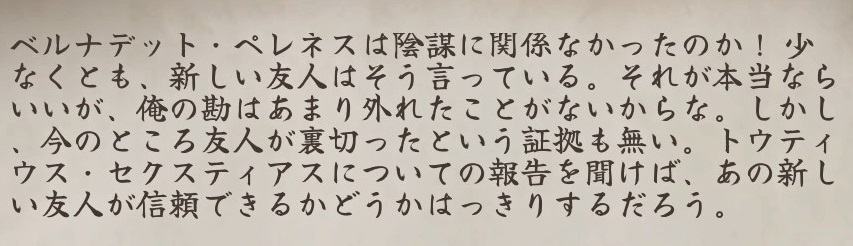 ベルナデット・ペレネスは陰謀に関係なかったのか！ 少
なくとも、新しい友人はそう言っている。それが本当なら
いいが、俺の勘はあまり外れたことがないからな。しかし
、今のところ友人が裏切ったという証拠も無い。トウティ
ウス・セクスティアスについての報告を聞けば、あの新し
い友人が信頼できるかどうかはっきりするだろう。